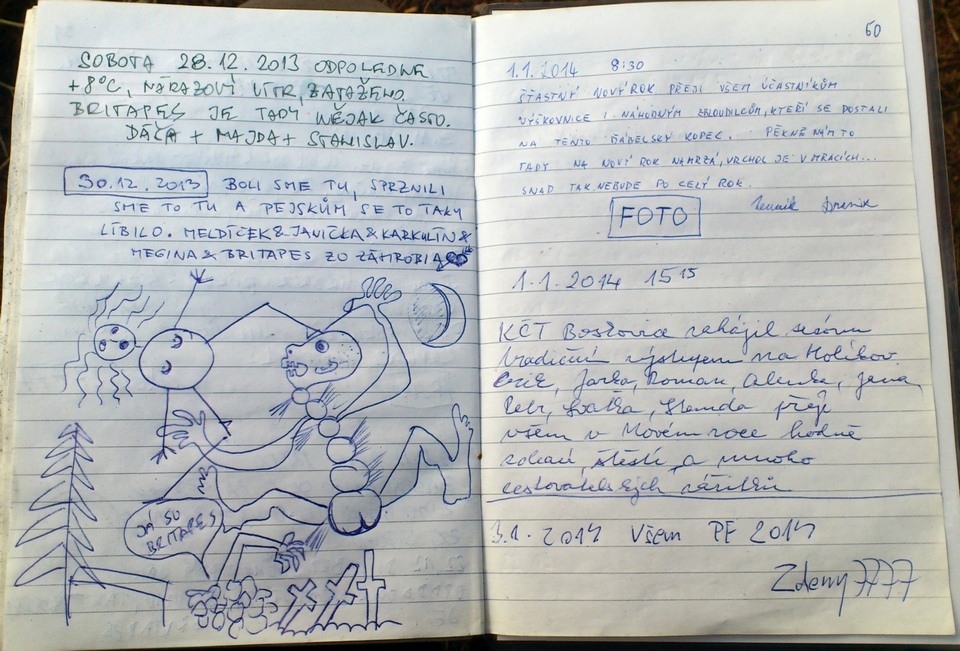 SOBOTA 28.12.2013 ODPOLEDNE
+8°C, NÁRAZOVÝ VÍTR, ZATAŽENO.
BRITAPES JE TADY NĚJAK ČASTO.
DÁČA + MAJDA + STANISLAV.
30.12.2013 BOLI SME TU, SPRZNILI
SME TO TU A PEJSKŮM SE TO TAKY
LÍBILO. MELDÍČEK & JANIČKA & KARKULÍN &
MEGINA & BRITAPES ZO ZÁHROBIA
JÁ SU
BRITAPES
60
1.1.2014 8:30
ŠŤASTNÝ NOVÝ ROK PŘEJI VŠEM ÚČASTNÍKŮM
VÝŠKOVNICE I NÁHODNÝM ZBLOUDILCŮM, KTEŘÍ SE DOSTALI
NA TENTO ĎÁBELSKÝ KOPEC. PĚKNĚ NÁM TO
TADY NA NOVÝ ROK NAMRZÁ, VRCHOL JE V MRACÍCH...
SNAD TAK NEBUDE PO CELÝ ROK.
FOTO
1.1.2014 15 15
KČT Boskovice zahájil sezónu
tradičním výstupem na Holíkov
Jarka, Roman, Alenka, Jana,
Petr, Standa přejí
všem v Novém roce hodně
zdraví, štěstí a mnoho
cestovatelských zážitků
3.1.2014 Všem PF 2014
Zdeny7777